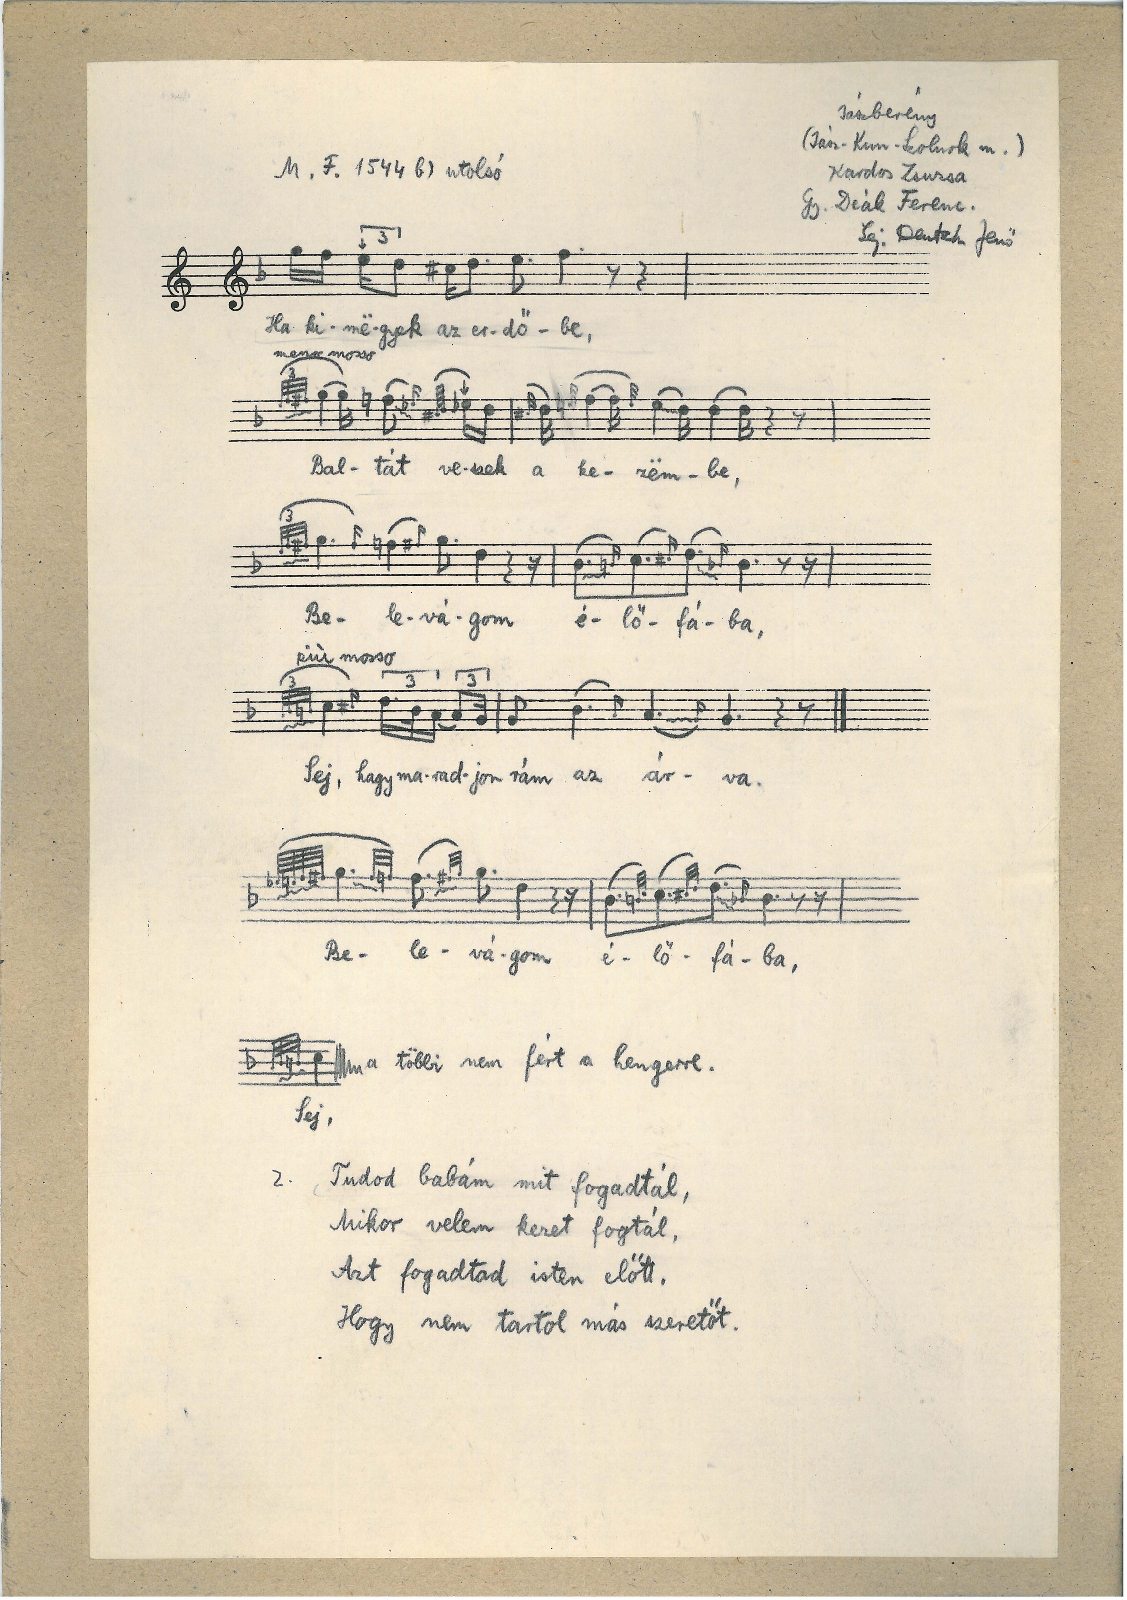 Jászberény
(Jász-Kun-Szolnok m.)
M. F. 1544 b) utolsó
Kardos Zsuzsa
Gy. Deák Ferenc.
Lej. Deutsch Jenő
3
Ha ki-më-gyek az er-dő-be,
meno mosso
3
Bal-tát ve-szek a ke-zëm-be,
3
Be- le-vá-gom é-lő-fá-ba,
più mosso
3 3 3
Sej, hagy ma-rad-jon rám az ár-va.
Be- le- vá-gom é-lő-fá-ba,
a többi nem fért a hengerre.
Sej,
2. Tudod babám mit fogadtál,
Mikor velem kezet fogtál,
Azt fogadtad isten előtt.
Hogy nem tartol más szeretőt.